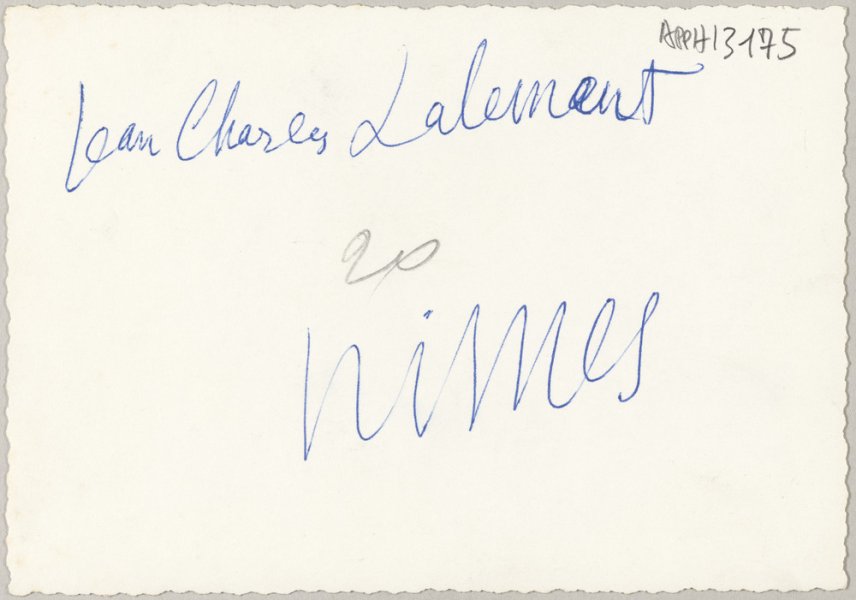 APPH13175
Jean Charles Lalement
20
nimes